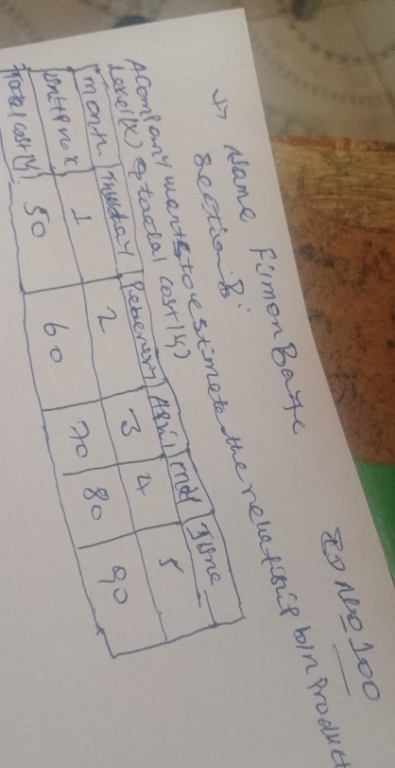 ID NO 100
Name Fumon Baze
Section B
A Company wants to estimate the relatisip b/n Product
Level (X) & toatal cost (Y)
month | | Feberuary | April | may | June
Units pro x | 1 | 2 | 3 | 4 | 5
Total cost (Y) | 50 | 60 | 70 | 80 | 90